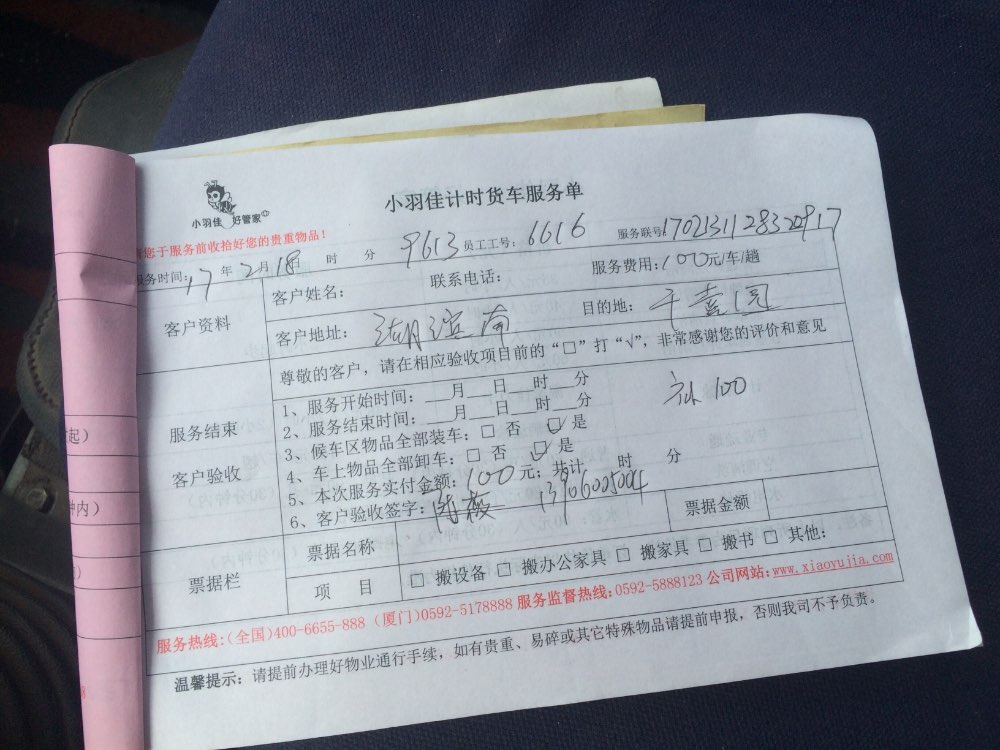 小羽佳 好管家
小羽佳计时货车服务单
请您于服务前收拾好您的贵重物品！
服务时间：17年2月18日 时 分 9613 员工工号：6616 服务联号
客户资料
客户姓名： 联系电话： 服务费用：100元/车/趟
客户地址：湖滨南 目的地：千喜园
服务结束
客户验收
尊敬的客户，请在相应验收项目前的“□”打“√”，非常感谢您的评价和意见
1、服务开始时间：___月___日___时___分
补100
2、服务结束时间：___月___日___时___分
3、候车区物品全部装车：□ 否 ☑ 是
4、车上物品全部卸车：□ 否 ☑ 是
5、本次服务实付金额：100元；共计 时 分
6、客户验收签字：
票据栏
票据名称 票据金额
项 目 □ 搬设备 □ 搬办公家具 □ 搬家具 □ 搬书 □ 其他：
服务热线：(全国)400-6655-888 (厦门)0592-5178888 服务监督热线：0592-5888123 公司网站：www.xiaoyujia.com
温馨提示：请提前办理好物业通行手续，如有贵重、易碎或其它特殊物品请提前申报，否则我司不予负责。
起）
钟内）